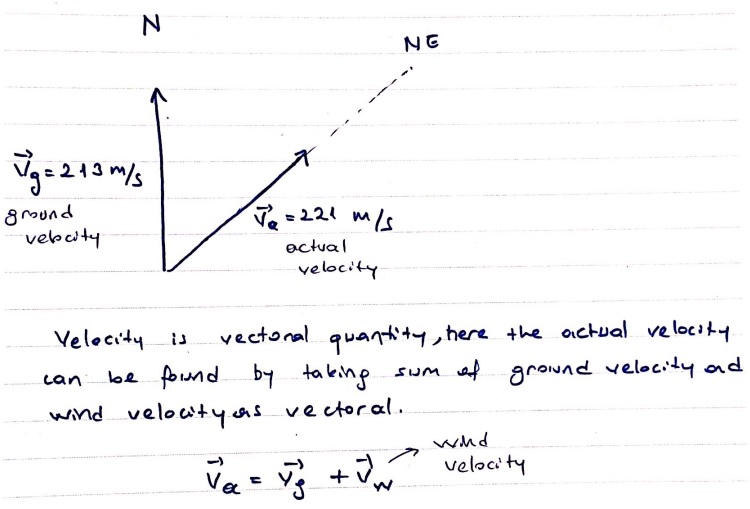 N
NE
V⃗g = 213 m/s
ground
velocity
V⃗a = 221 m/s
actual
velocity
Velocity is vectoral quantity, here the actual velocity
can be found by taking sum of ground velocity and
wind velocity as vectoral.
wind
velocity
V⃗a = V⃗g + V⃗w